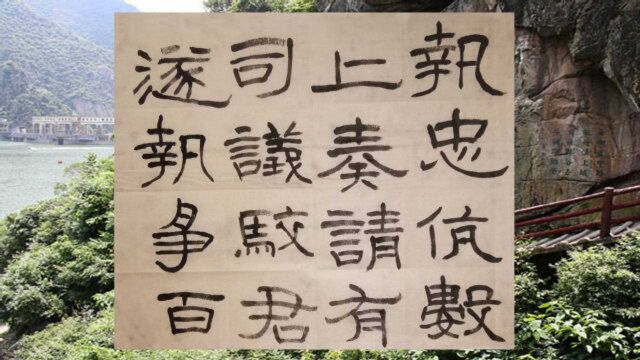 執忠伉數
上奏請有
司議駮君
遂執爭百